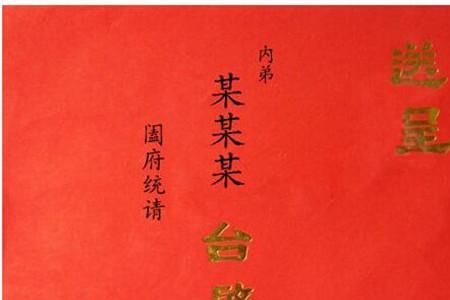 送呈
内弟
某某某
台
阖府统请